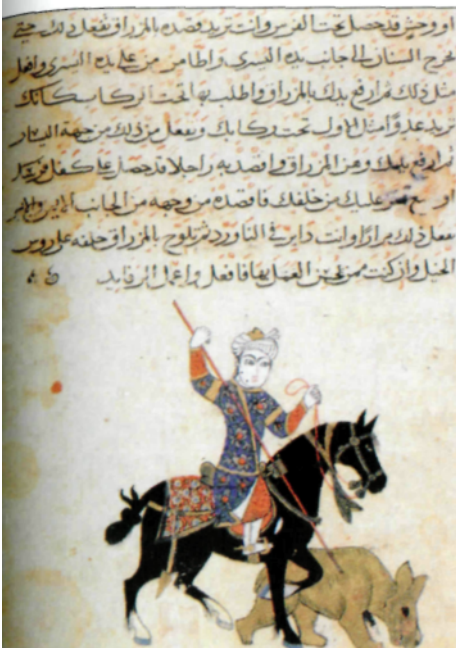 او وحش قد حصل تحت الفرس وانت تريد قصده بالمزراق تفعل ذلك حتى
يخرج السنان الى جانب يده اليسرى واطا من على يده اليسرى وافعل
مثل ذلك مرارا فع يدك بالمزراق واطلب بها تحت الركاب كانك
تريد عدوا مثل الاول تحت ركابك وتفعل من ذلك من جهة اليسار
مرارا فع يدك وهز المزراق واقصد به راجلا قد حصل على كفل فرسك
او سبع عليك من خلفك فاقصده من وجهه من الجانب الايمن والايسر
تفعل ذلك مرارا وانت داير في الناورد ثم تلوح بالمزراق خلفه على روس
الخيل وان كنت ممن يحسن العمل بقافا فعل واعمل